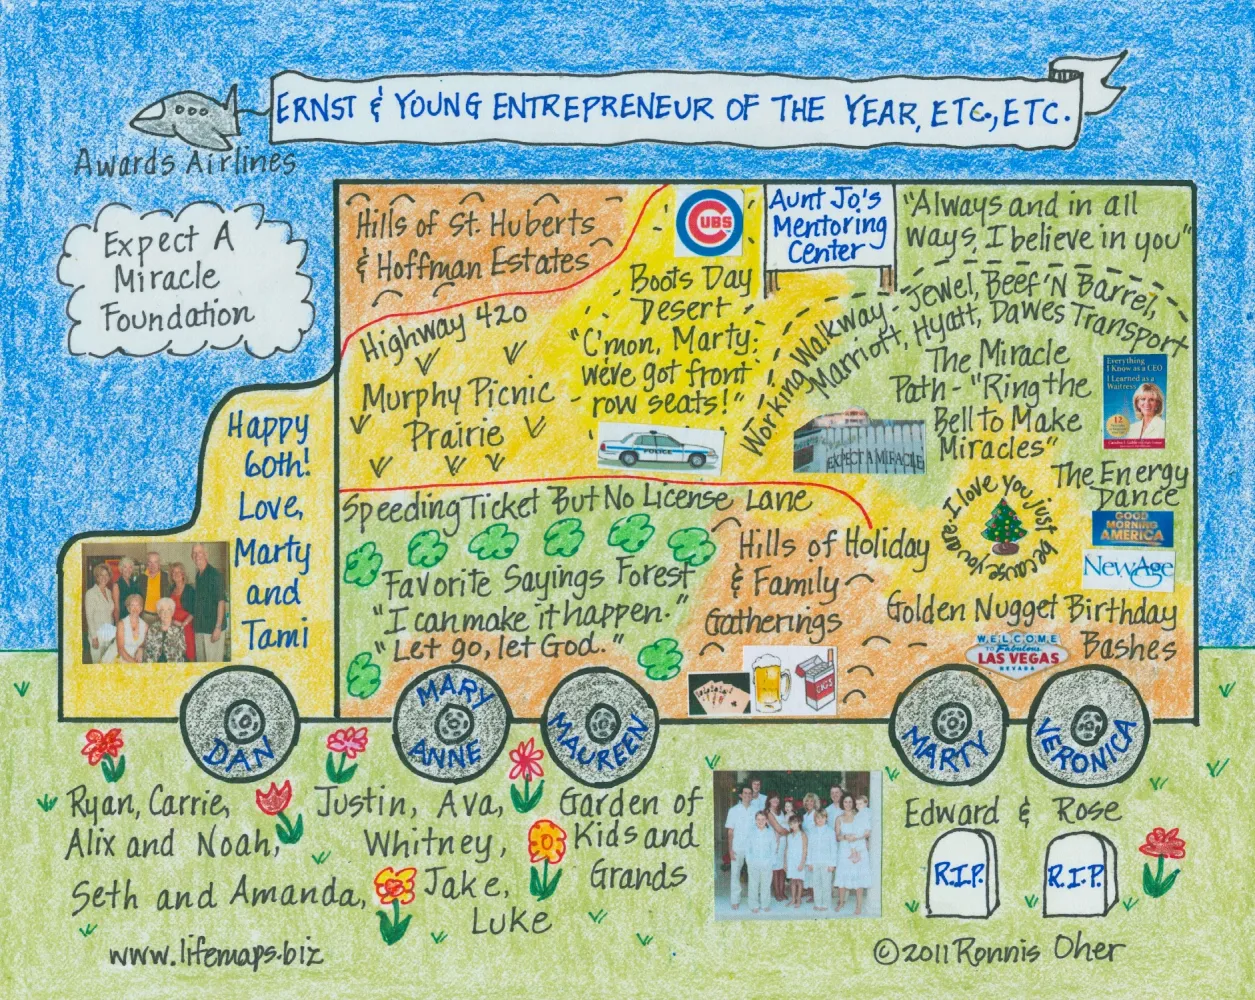 ERNST & YOUNG ENTREPRENEUR OF THE YEAR, ETC., ETC.
Awards Airlines
Expect A
Miracle
Foundation
Happy
60th!
Love,
Marty
and
Tami
Hills of St. Huberts
& Hoffman Estates
Highway 420
Murphy Picnic
Prairie
CUBS
Boots Day
Desert
"C'mon, Marty:
we've got front
row seats!"
POLICE
Aunt Jo's
Mentoring
Center
"Always and in all
ways, I believe in you"
Working Walkway - Jewel, Beef 'N Barrel,
Marriott, Hyatt, Dawes Transport
The Miracle
Path - "Ring the
Bell to Make
Miracles"
EXPECT A MIRACLE
Everything
I Know as a CEO
I Learned as a
Waitress
12
The Energy
Dance
GOOD
MORNING
AMERICA
NewAge
I love you just because you are
Speeding Ticket But No License Lane
Favorite Sayings Forest
"I can make it happen."
"Let go, let God."
Hills of Holiday
& Family
Gatherings
CIGS
Golden Nugget Birthday
Bashes
WELCOME
TO Fabulous
LAS VEGAS
NEVADA
DAN
MARY
ANNE
MAUREEN
MARTY
VERONICA
Ryan, Carrie,
Alix and Noah,
Seth and Amanda,
Justin, Ava,
Whitney,
Jake,
Luke
Garden of
Kids and
Grands
Edward & Rose
R.I.P.
R.I.P.
www.lifemaps.biz
©2011 Ronnis Oher